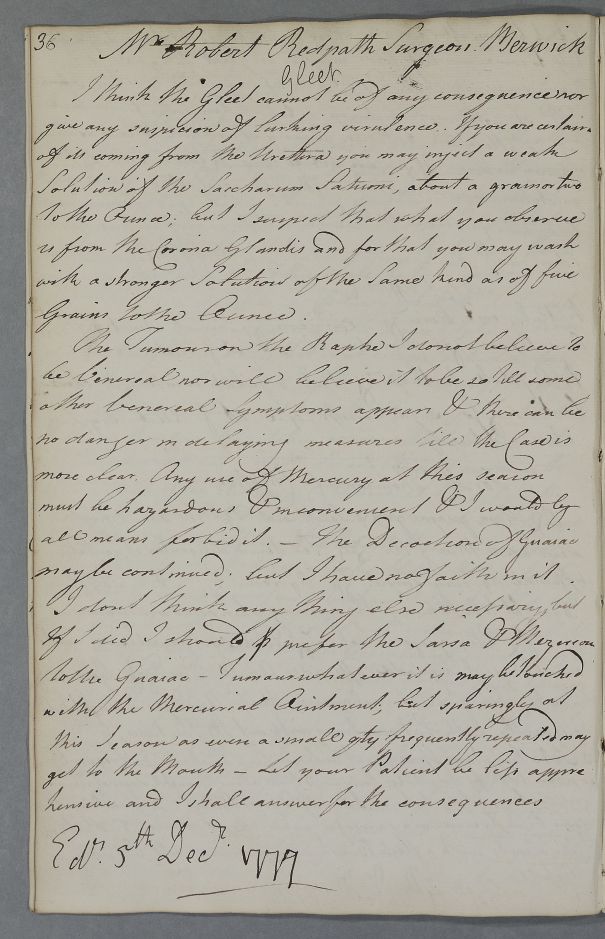 36
Mr. Robert Redpath Surgeon Berwick
Gleet.
I think the Gleet cannot be of any consequence nor
give any suspicion of lurking virulence. If you are certain
of its coming from the Urethra you may inject a weak
Solution of the Saccharum Saturni, about a grain or two
to the Ounce; but I suspect that what you observe
is from the Corona Glandis and for that you may wash
with a stronger Solution of the Same kind as of five
Grains to the Ounce.
The Tumour on the Raphe I do not believe to
be Venereal nor will believe it to be so till some
other Venereal Symptoms appear & there can be
no danger in delaying measures till the Case is
more clear. Any use of Mercury at this season
must be hazardous & inconvenient & I would by
all means forbid it. – The Decoction of Guaiac
may be continued, but I have no faith in it
I dont think any thing else necessary, but
If I did I should prefer the Sarsa & Mezereon
to the Guaiac – Tumour whatever it is may be touched
with the Mercurial Ointment, but sparingly at
this Season as even a small qty frequently repeated may
get to the Mouth – Let your Patient be less appre
hensive and I shall answer for the consequences
Edr. 5th Decr. 1777